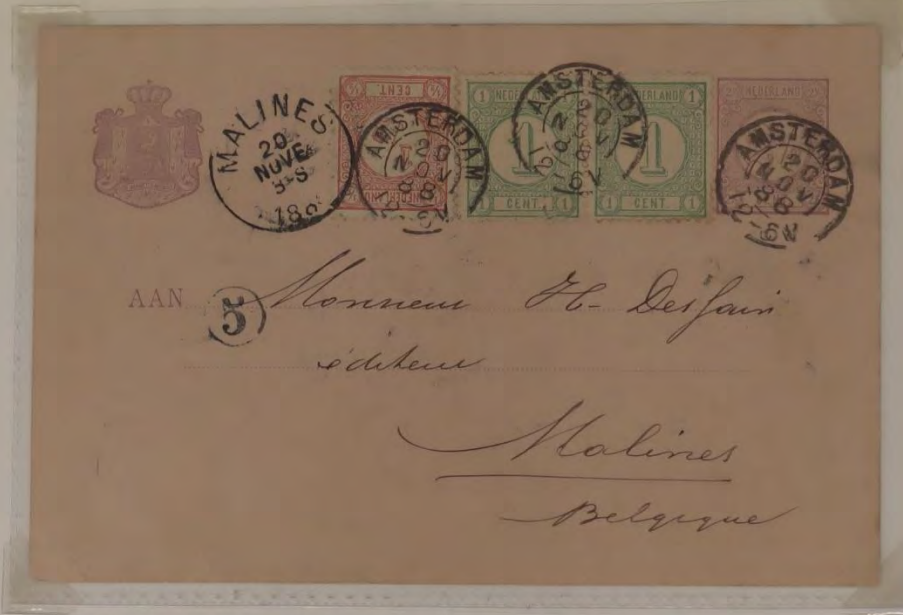 MALINES
20
NOVE
3-S
188
½ CENT. ½
AMSTERDAM
20
NOV
88
6V
1 NEDERLAND 1
1
1 CENT. 1
AMSTERDAM
20
NOV
88
6V
1 NEDERLAND 1
1
1 CENT. 1
2½ NEDERLAND 2½
AMSTERDAM
20
NOV
88
6V
AAN Monsieur H- Dessain
5
éditeur
Malines
Belgique